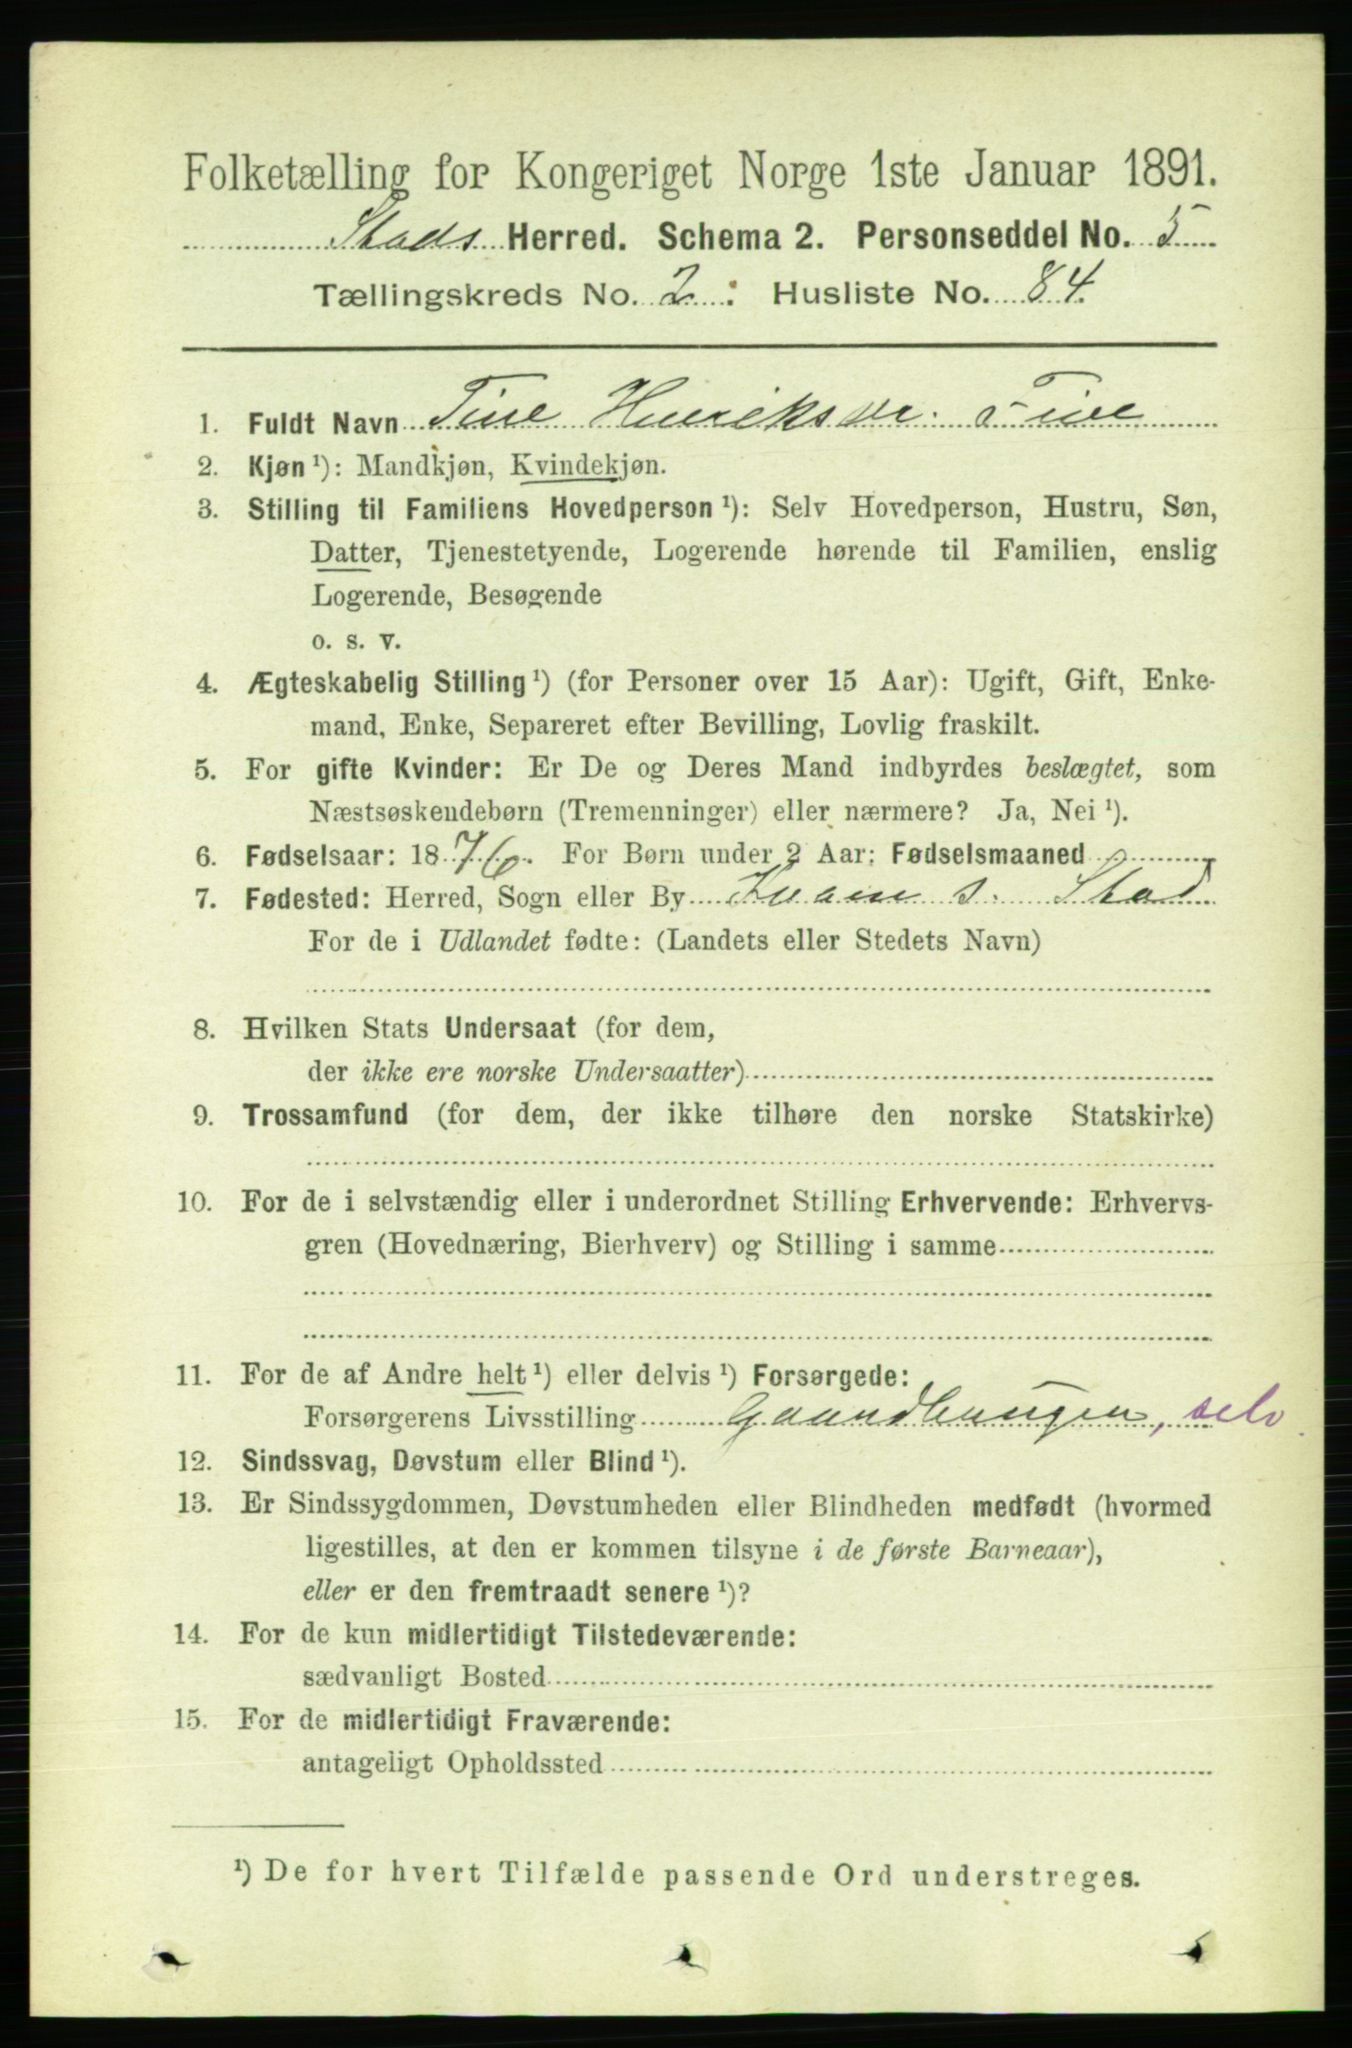 Folketælling for Kongeriget Norge 1ste Januar 1891.
Stods Herred. Schema 2. Personseddel No. 5
Tællingskreds No. 2. : Husliste No. 84.
1. Fuldt Navn Tine Henriksdr.
2. Kjøn ¹): Mandkjøn, Kvindekjøn.
3. Stilling til Familiens Hovedperson ¹): Selv Hovedperson, Hustru, Søn,
Datter, Tjenestetyende, Logerende hørende til Familien, enslig
Logerende, Besøgende
o. s. v.
4. Ægteskabelig Stilling ¹) (for Personer over 15 Aar): Ugift, Gift, Enke-
mand, Enke, Separeret efter Bevilling, Lovlig fraskilt.
5. For gifte Kvinder: Er De og Deres Mand indbyrdes beslægtet, som
Næstsøskendebørn (Tremenninger) eller nærmere? Ja, Nei ¹).
6. Fødselsaar: 1876. For Børn under 2 Aar: Fødselsmaaned
7. Fødested: Herred, Sogn eller By Kvam s. Stod
For de i Udlandet fødte: (Landets eller Stedets Navn)
8. Hvilken Stats Undersaat (for dem,
der ikke ere norske Undersaatter)
9. Trossamfund (for dem, der ikke tilhøre den norske Statskirke)
10. For de i selvstændig eller i underordnet Stilling Erhvervende: Erhvervs-
gren (Hovednæring, Bierhverv) og Stilling i samme
11. For de af Andre helt ¹) eller delvis ¹) Forsørgede:
Forsørgerens Livsstilling Gaardbruger, selv
12. Sindssvag, Døvstum eller Blind ¹).
13. Er Sindssygdommen, Døvstumheden eller Blindheden medfødt (hvormed
ligestilles, at den er kommen tilsyne i de første Barneaar),
eller er den fremtraadt senere ¹)?
14. For de kun midlertidigt Tilstedeværende:
sædvanligt Bosted
15. For de midlertidigt Fraværende:
antageligt Opholdssted
¹) De for hvert Tilfælde passende Ord understreges.